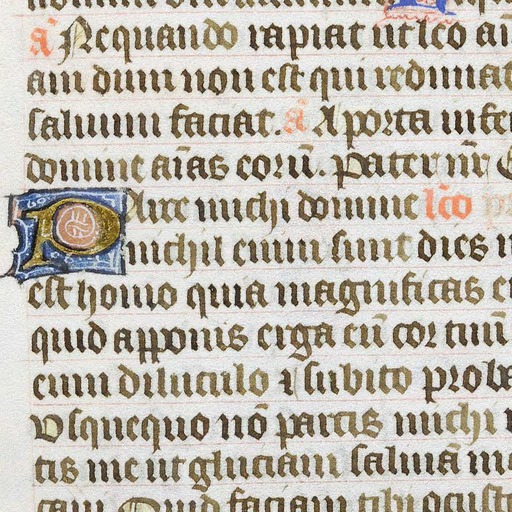 a Nequando rapiat ut leo
am dum non est qui redimat
saluum faciat. a A porta
domine aīas eorū. Pater nr̄
Parce michi domine lc̄o
nichil enim sunt dies
est homo quia magnificas
quid apponis erga eū cor tuū
eum diluculo ⁊ subito
vsquequo nō parcis michi
tis me ut gluciam saliuā
Quid faciam tibi